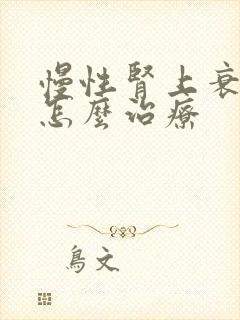 慢性腎上衰
怎麼治療
鳥文